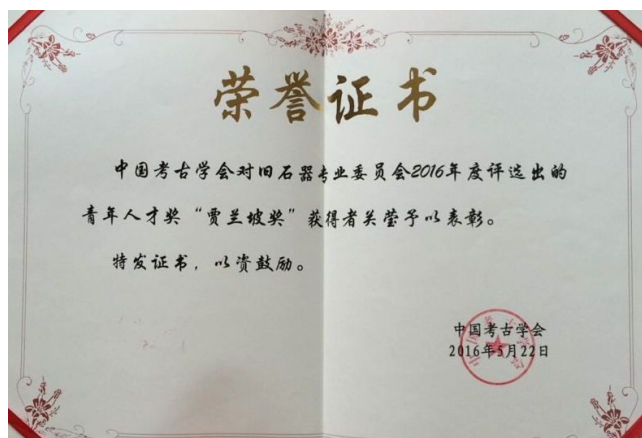 荣誉证书
中国考古学会对旧石器专业委员会2016年度评选出的
青年人才奖“贾兰坡奖”获得者关莹予以表彰。
特发证书，以资鼓励。
中国考古学会
2016年5月22日